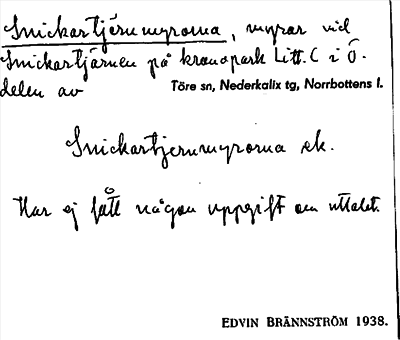 Snickartjärnmyrorna, myror vid
Snickartjärnen på kronopark Litt. C i Ö.
delen av Töre sn, Nederkalix tg, Norrbottens l.
Snickartjernmyrorna ek.
Har ej fått någon uppgift om uttalet.
EDVIN BRÄNNSTRÖM 1938.